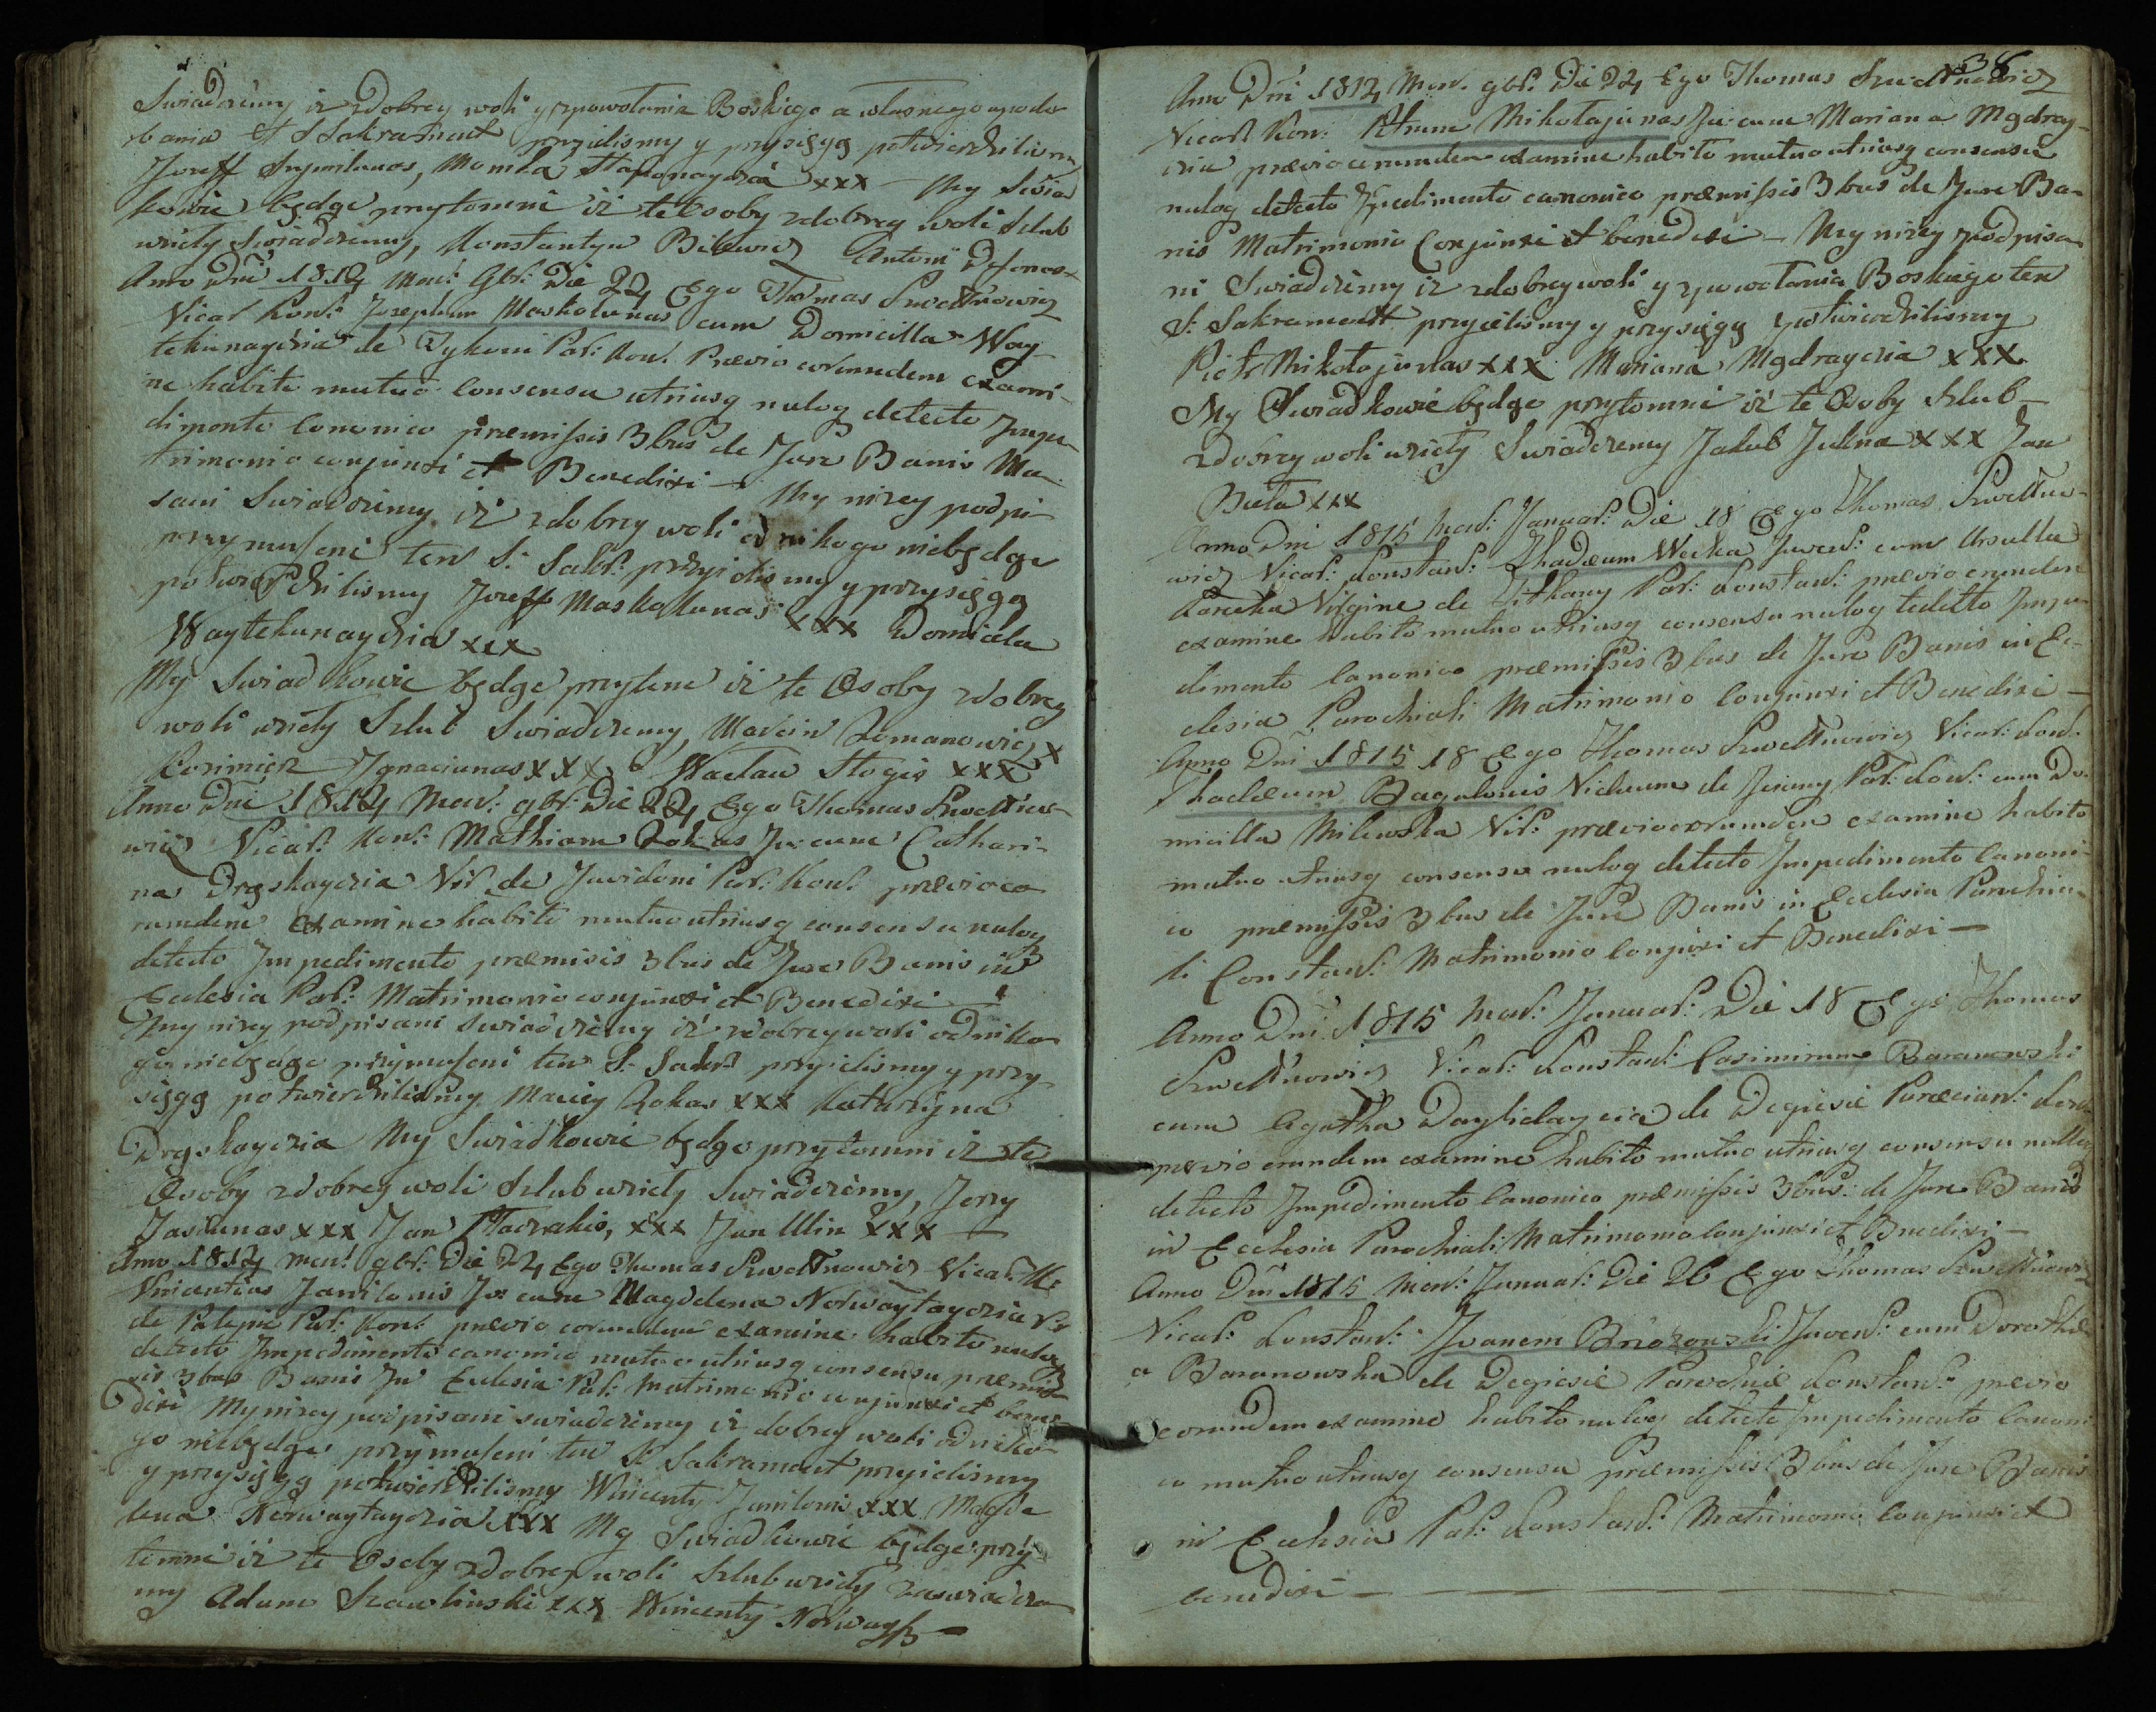 Swiadczemy iz zdobrey woli y zpowołania Boskiego a własnego upodo-
bania St Sakrament przyielismy y przysięgą potwierdzilismy
Jozeff Szymkunos, Monika Staponayczia xxx My Swiad
kowie będąc przytomni iż te Osoby zdobrey woli Szlub
wzieły Swiadczemy, Konstantyn Bilewicz Antoni
Anno Dni 1814 Men: 9br: Die 22 Ego Thomas Szwettnowicz
Vicar Kon: Josephum Maskolunas cum Domicilla Way-
tekunayczia de Tykuni Par: Kon: Prævio eorumdem exami-
ne habito mutuo Consensu utriusq nuloq detecto Impe-
dimento Cononico præmissis 3bus de Jure Banis Ma-
trimonio conjunxi et Benedixi — My nizey podpi-
sani Swiadczemy iż zdobrey woli od nikogo niebędąc
przymuszeni ten S: Sakr: przyielismy y przysięgą
potwierdzilismy Jozeff Maskolunas xxx Domicela
Waytekunayczia xxx
My Swiadkowie będąc przytome iż te Osoby zdobrey
woli wzieły Szlub Swiadczemy, Marcin Romanowicz x
Kazimierz Ignaciunas xxx Wacław Stogis xxx
Anno Dni 1814 Men: 9br: Die 22 Ego Thomas Szwettno-
wicz Vicar: Kon: Mathiam Rokas Ju: cum Cathari-
na Drąskayczia Vir: de Juvidoni Par: Kon: prævio eo-
rumdem examine habito mutuo utriusq consensu nuloq
detecto Impedimento præmisis 3bus de Jure Banis in
Ecclesia Par: Matrimonio conjunxi et Benedixi —
My nizey podpisani Swiadczemy iż zdobrey woli odniko-
go niebędąc przymuszeni ten S. Sakr: przyielismy y przy-
sięgą potwierdzilismy Maciey Rokas xxx Katarzyna
Drąskayczia My Swiadkowie będąc przytomni iż te
Osoby zdobrey woli Szlub wzieły Swiadczemy, Jerzy
Jasiunas xxx Jan Staczakis, xxx Jan Ulin xxx —
Anno 1814 Men: 9br: Die 22 Ego Thomas Szwettnowicz Vicar: Ko
Vincentius Janilonis Ju: cum Magdelena Norwaytayczia Vir
de Palepie Par: Kon: prævio eorumdem examine habito nuloq
detecto Impedimento canonico mutuo utriusq consensu præmis-
sis 3bus Banis In Ecclesia Par: Matrimonio conjunxi et bene-
dixi My nizey podpisani swiadczemy iz dobrey woli odniko-
go niebędąc przymuszeni ten S: Sakrament przyielismy
y przysięgą potwierdzilismy Wincenty Janilonis xxx Magde
lena Norwaytayczia xxx My Swiadkowie będąc przy-
tomni iż te Osoby zdobrey woli Szlub wzieły zaswiadcza-
my Adam Szawlinski xxx Wincenty Norwaysz —
38
Anno Dni 1814 Men: 9br: Die 22 Ego Thomas Szwettnowicz
Vicar: Kon: Petrum Mikołajunas Ju: cum Mariana Mędray-
czia prævio eorumdem examine habito mutuo utriusq consensu
nuloq detecto Impedimento canonico præmissis 3bus de Jure Ba-
nis Matrimonio Conjunxi et benedixi — My nizey podpisa-
ni Swiadczemy iz zdobrey woli y zpowołania Boskiego ten
S: Sakrament przyielismy y przysięgą potwierdzilismy
Piotr Mikołojunas xxx Mariana Mędrayczia xxx
My Swiadkowie będąc przytomni iż te Osoby Szlub
zdobrey woli wzieły Swiadczemy Jakub Julna xxx Jan
Buta xxx
Anno Dni 1815 Men: Januar: Die 18 Ego Thomas Szwettno-
wicz Vicar: Constan: Thadeum Wecka Juven: cum Ursulla
Virgine de Par: Constan: prævio eorumdem
examine habito mutuo utriusq consensu nuloq tedetto Impe-
dimento Canonico præmissis 3bus de Jure Banis in Ec-
clesia Parochiali Matrimonio Conjunxi et Benedixi —
Anno Dni 1815 18 Ego Thomas Szwettnowicz Vicar: Con:
Thadeum Bagdonis Viduum de Par: Con: cum Do-
micilla Milewska Vir: prævio eorumdem examine habito
mutuo utriusq consensu nuloq detecto Impedimento Canoni-
co præmissis 3bus de Jure Banis in Ecclesia Parochia-
li Constan: Matrimonio Conjuxi et Benedixi —
Anno Dni 1815 Men: Januar: Die 18 Ego Thomas
Szwettnowicz Vicar: Constan: Casimirum Baranowski
cum Agatha Daylidayczia de Degiesie Paræcian: Const
prævio eorundem examine habito mutuo utriusq consensu nulloq
detecto Impedimento Canonico præmissis 3bus: de Jure Banis
in Ecclesia Parochiali Matrimonio Conjunxi et Bnedixi —
Anno Dni 1815 Men: Januar: Die 26 Ego Thomas Szwettnowicz
Vicar: Constan: Ivanem Brzozowski Juven: cum Dorothe
a Baranowska de Degiesie Parochiæ Constan: prævio
eorumdem examine habito nuloq detecto Impedimento Canoni
co mutuo utriusq consensu præmissis 3bus de Jure Banis
in Ecclesia Par: Constan: Matrimonio Conjunxi et
benedixi —